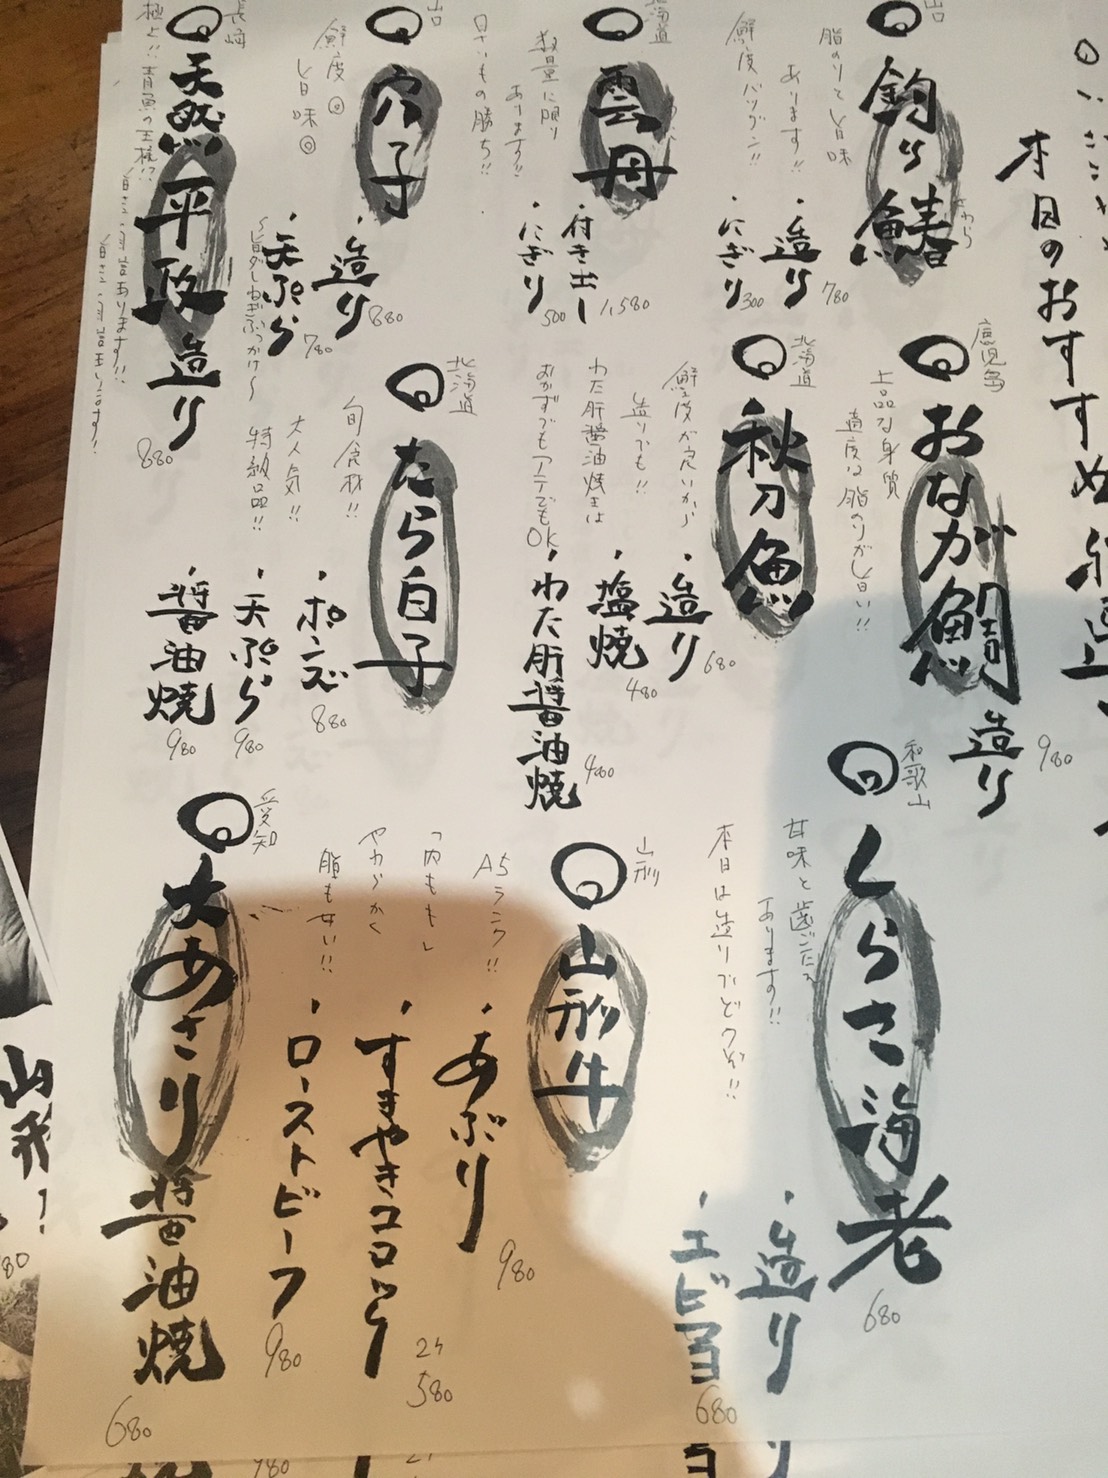 本日のおすすめ
山口
釣り鰆
さわら
脂のりと旨味
あります!!
鮮度バツグン!!
・造り 780
・にぎり 300
北海道
雲丹
数量に限り
あります!!
早いもの勝ち!!
・付き出し 1,580
・にぎり 500
山口
穴子
鮮度◎
旨味◎
・造り 880
・天ぷら 780
長崎
天然平政造り
極上!!青魚の王様!?
880
鹿児島
おなが鯛造り
上品な身質
適度な脂のりが旨い!!
980
北海道
秋刀魚
鮮度が良いから
造りでも!!
わた肝醤油焼きは
おかずでもアテでもOK
・造り 680
・塩焼 480
・わた肝醤油焼 480
北海道
たら白子
旬食材!!
大人気!!
特級品!!
・ポンズ 880
・天ぷら 980
・醤油焼 980
和歌山
しらさ海老
甘味と歯ごたえ
あります!!
本日は造りでどうぞ!!
・造り 680
・エビマヨ 680
山形
山形牛
A5ランク!!
内もも
やわらかく
脂も甘い!!
・あぶり 980
・すきやきコロッケ 2ケ 580
・ローストビーフ 980
愛知
大あさり醤油焼
680
山形